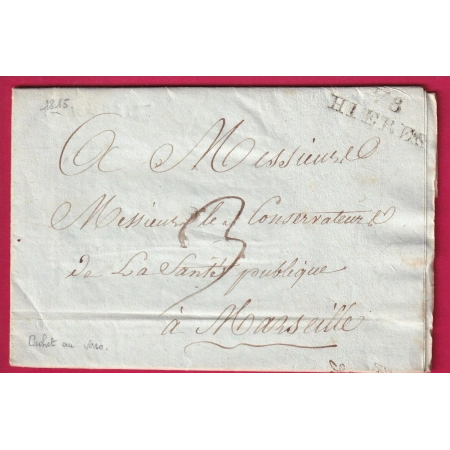 1815.
78
HIERES
A Messieurs
Messieurs les Conservateurs
3
de La Santé publique
à Marseille
Cachet au verso.